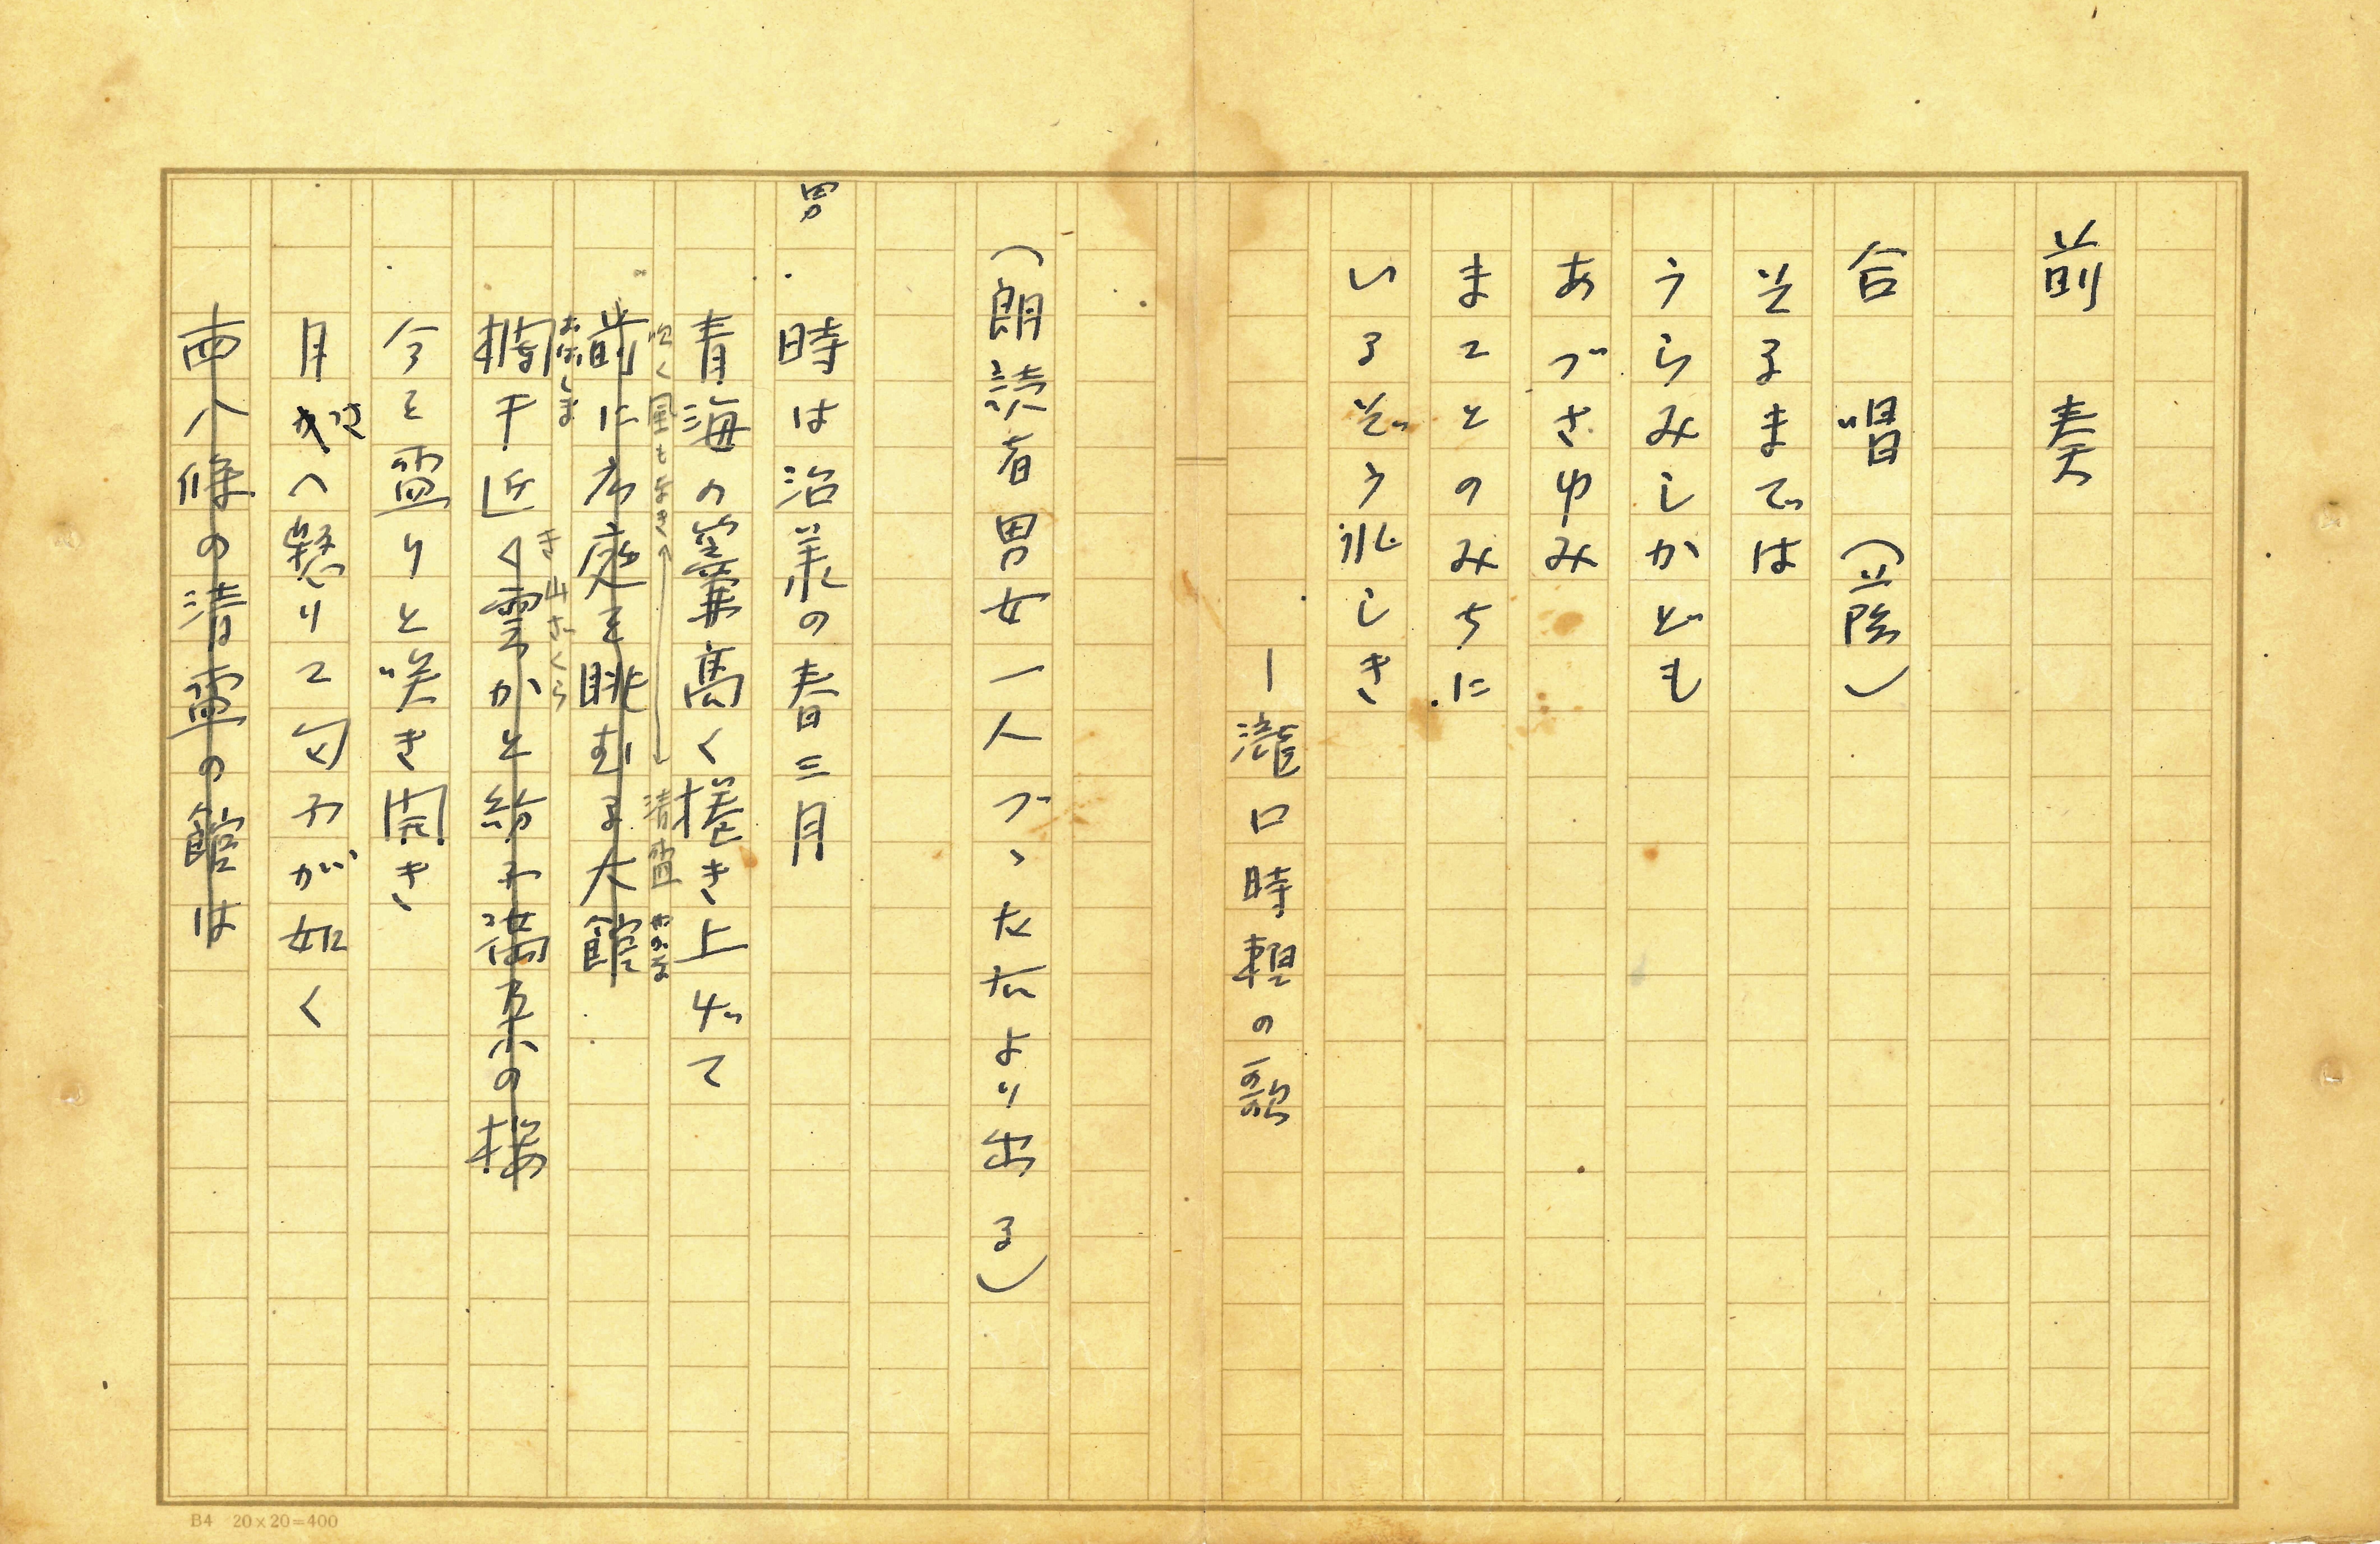 前奏
合唱（立陰）
そるまでは
うらみしかども
あづさゆみ
まことのみちに
いるぞうれしき
ー瀧口時頼の歌
（朗読者男女一人づゝ左右より出る）
男
時は治承の春三月
青海の簾高く捲き上げて
吹く風も
清宵
前に広庭を眺むる大舘
おばしま
欄干近く雲かと紛ふ満朶の桜
き山ざくら
今を盛りと咲き開き
月さへ懸りて匂ふが如く
西八條の清盛の舘は
B4 20×20=400